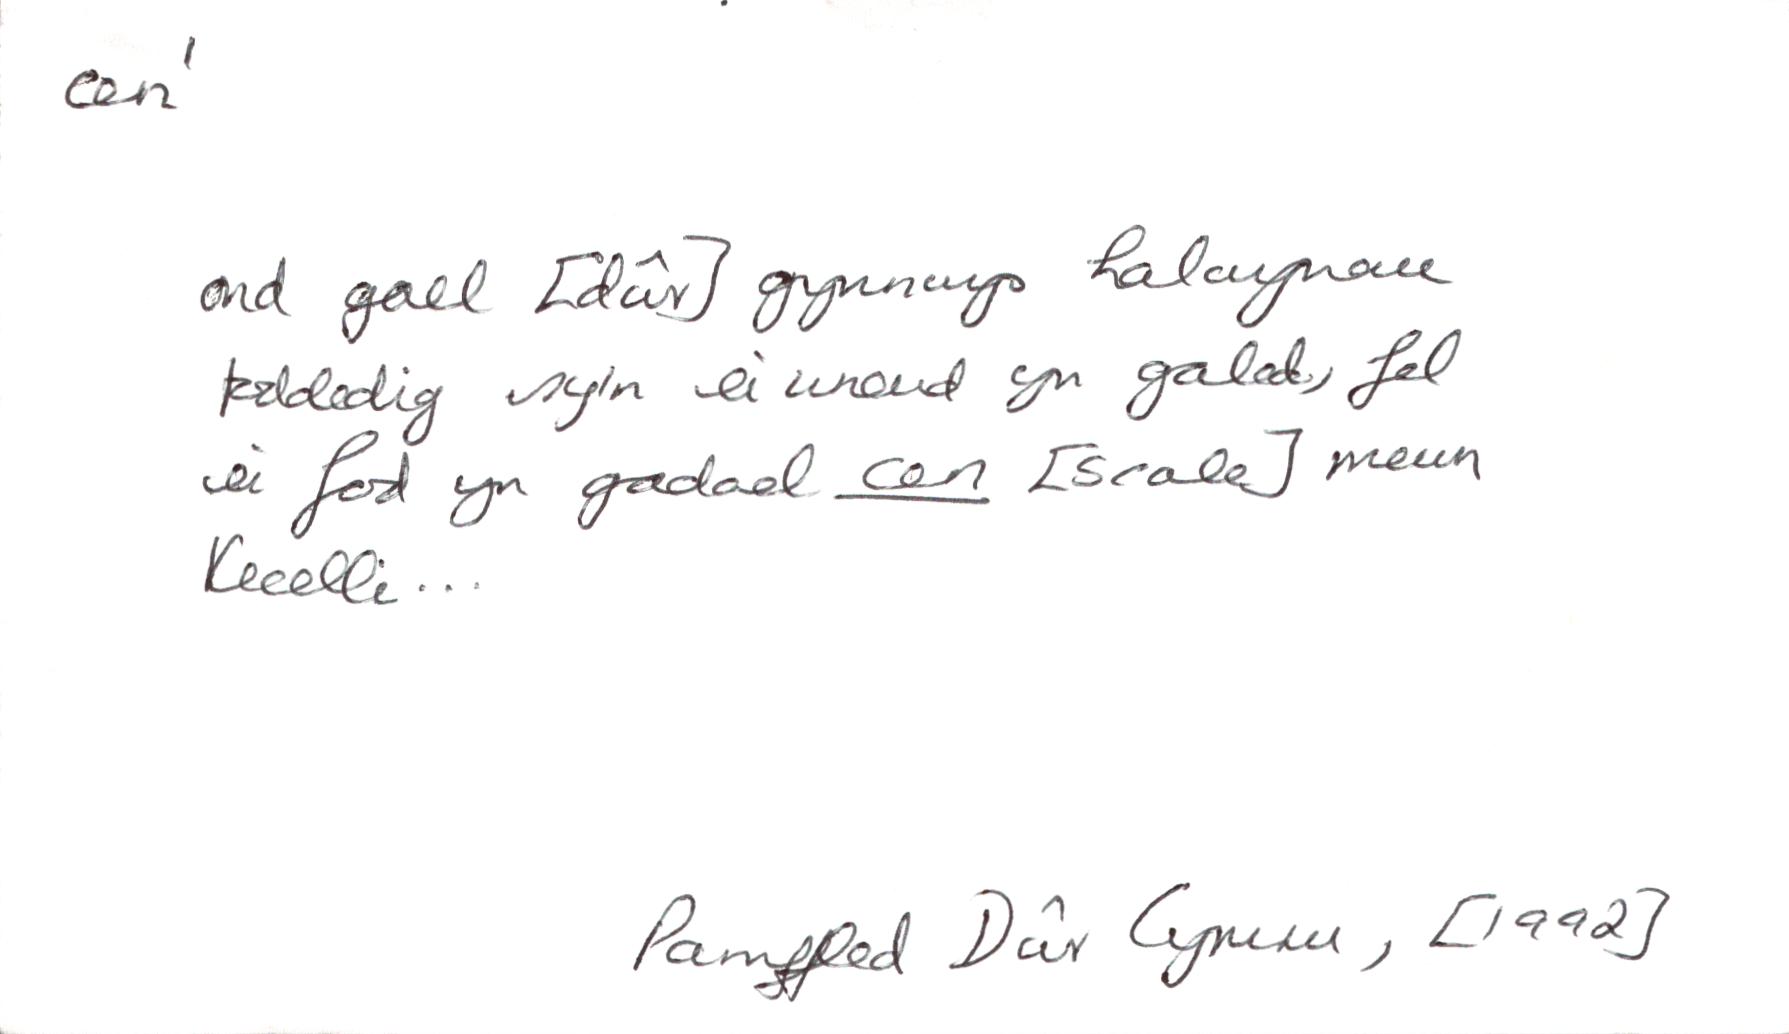 cen¹
ond gall [dŵr] gynnwys halwynau
toddedig sy'n ei wneud yn galed, fel
ei fod yn gadael cen [scale] mewn
tecelli...
Pamffled Dŵr Cymru, [1992]